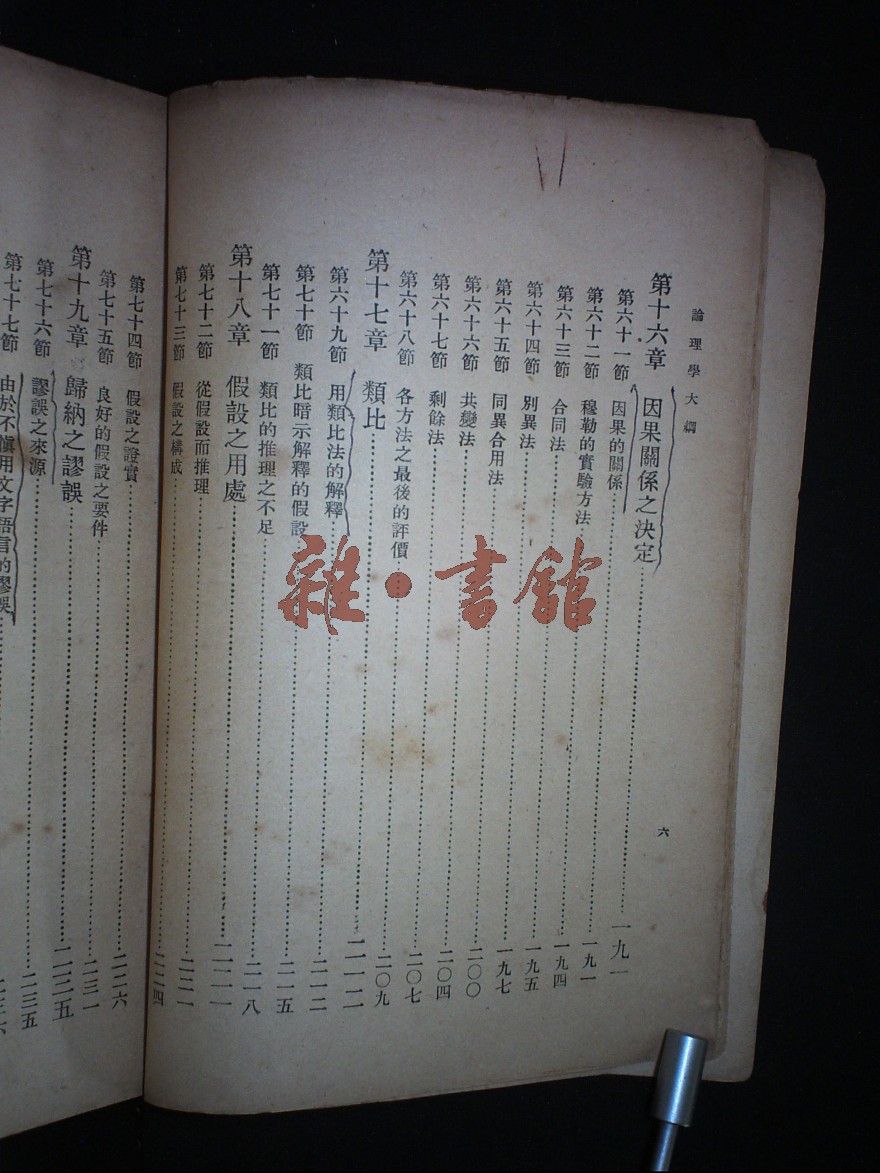 論理學大綱
六
第十六章 因果關係之決定……一九一
第六十一節 因果的關係……一九一
第六十二節 穆勒的實驗方法……一九四
第六十三節 合同法……一九五
第六十四節 別異法……一九七
第六十五節 同異合用法……二〇〇
第六十六節 共變法……二〇四
第六十七節 剩餘法……二〇七
第六十八節 各方法之最後的評價……二〇九
第十七章 類比……二一二
第六十九節 用類比法的解釋……二一二
第七十節 類比暗示解釋的假設……二一五
第七十一節 類比的推理之不足……二一八
第十八章 假設之用處……二二一
第七十二節 從假設而推理……二二一
第七十三節 假設之構成……二二四
第七十四節 假設之證實……二二六
第七十五節 良好的假設之要件……二三一
第十九章 歸納之謬誤……二三五
第七十六節 謬誤之來源……二三五
第七十七節 由於不慎用文字語言的謬誤……
雜·書館